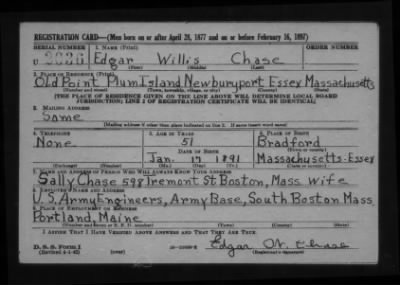 REGISTRATION CARD—(Men born on or after April 28, 1877 and on or before February 16, 1897)
SERIAL NUMBER 1. NAME (Print) ORDER NUMBER
U 2036 Edgar Willis Chase
(First) (Middle) (Last)
2. PLACE OF RESIDENCE (Print)
Old Point Plum Island Newburyport Essex Massachusetts
(Number and street) (Town, township, village, or city) (County) (State)
[THE PLACE OF RESIDENCE GIVEN ON THE LINE ABOVE WILL DETERMINE LOCAL BOARD
JURISDICTION; LINE 2 OF REGISTRATION CERTIFICATE WILL BE IDENTICAL]
3. MAILING ADDRESS
Same
[Mailing address if other than place indicated on line 2. If same insert word same]
4. TELEPHONE 5. AGE IN YEARS 6. PLACE OF BIRTH
None 51 Bradford
DATE OF BIRTH (Town or county)
Jan. 17 1891 Massachusetts-Essex
(Exchange) (Number) (Mo.) (Day) (Yr.) (State or country)
7. NAME AND ADDRESS OF PERSON WHO WILL ALWAYS KNOW YOUR ADDRESS
Sally Chase 598 Tremont St Boston, Mass Wife
8. EMPLOYER'S NAME AND ADDRESS
U.S. Army Engineers, Army Base, South Boston Mass
9. PLACE OF EMPLOYMENT OR BUSINESS
Portland, Maine
(Number and street or R. F. D. number) (Town) (County) (State)
I AFFIRM THAT I HAVE VERIFIED ABOVE ANSWERS AND THAT THEY ARE TRUE.
D. S. S. Form 1 Edgar W. Chase
(Revised 4-1-42) (over) (Registrant's signature)